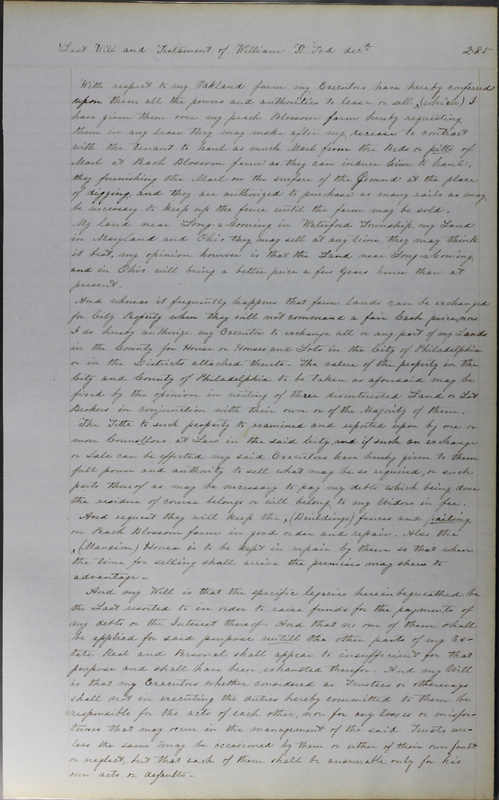 Last Will and Testament of William D. Ford decd 285
With respect to my Oakland farm my Executors have hereby conferred
upon them all the powers and authorities to lease or sell, (which) I
have given them over my peach Blossom farm hereby requesting
them in any lease they may make after my decease to contract
with the tenant to haul as much Marl from the Beds or pitts of
Marl at Peach Blossom farm as they can induce him to haul,
they furnishing the Marl on the surface of the ground at the place
of digging, and they are authorized to purchase as many rails as may
be necessary to keep up the fence until the farm may be sold.
My Land near Long-a-Coming in Waterford Township, my Land
in Maryland and Ohio they may sell at any time they may think
it best, my opinion however is that the Land near Long-a-Coming
and in Ohio will bring a better price a few years hence than at
present.
And whereas it frequently happens that farm lands can be exchanged
for City Property when they will not command a fair Cash price, now
I do hereby authorize my Executors to exchange all or any part of my Lands
in the County for House or Houses and Lots in the City of Philadelphia
or in the Districts attached thereto. The value of the property in the
City and County of Philadelphia to be taken as aforesaid may be
fixed by the opinion in writing of three disinterested Land or Lot
Brokers in conjunction with their own or of the Majority of them.
The Title to such property to examined and reported upon by one or
more Counsellors at Law in the said City and if such an exchange
or Sale can be effected my said Executors have hereby given to them
full power and authority to sell what may be so required, or such
parts thereof as may be necessary to pay my debts which being done
the residue of course belongs or will belong to my Widow in fee.
And request they will keep the (Buildings) fences and railing
on Peach Blossom farm in good order and repair. Also the
(Mansion) House is to be kept in repair by them so that when
the time for selling shall arrive the premises may shew to
advantage.
And my Will is that the specific legacies herein bequeathed be
the Last resorted to in order to raise funds for the payments of
my debts or the Interest thereof. And that no one of them shall
be applied for said purpose untill the other parts of my Es-
tate Real and Personal shall appear to insufficient for that
purpose and shall have been exhausted therefor. And my Will
is that my Executors whether considered as Trustees or otherways
shall not in executing the duties hereby committed to them be
responsible for the acts of each other, nor for any losses or misfor-
tunes that may occur in the management of the said Trusts un-
less the same may be occasioned by them or either of their own fault
or neglect, but that each of them shall be answerable only for his
own acts or defaults.